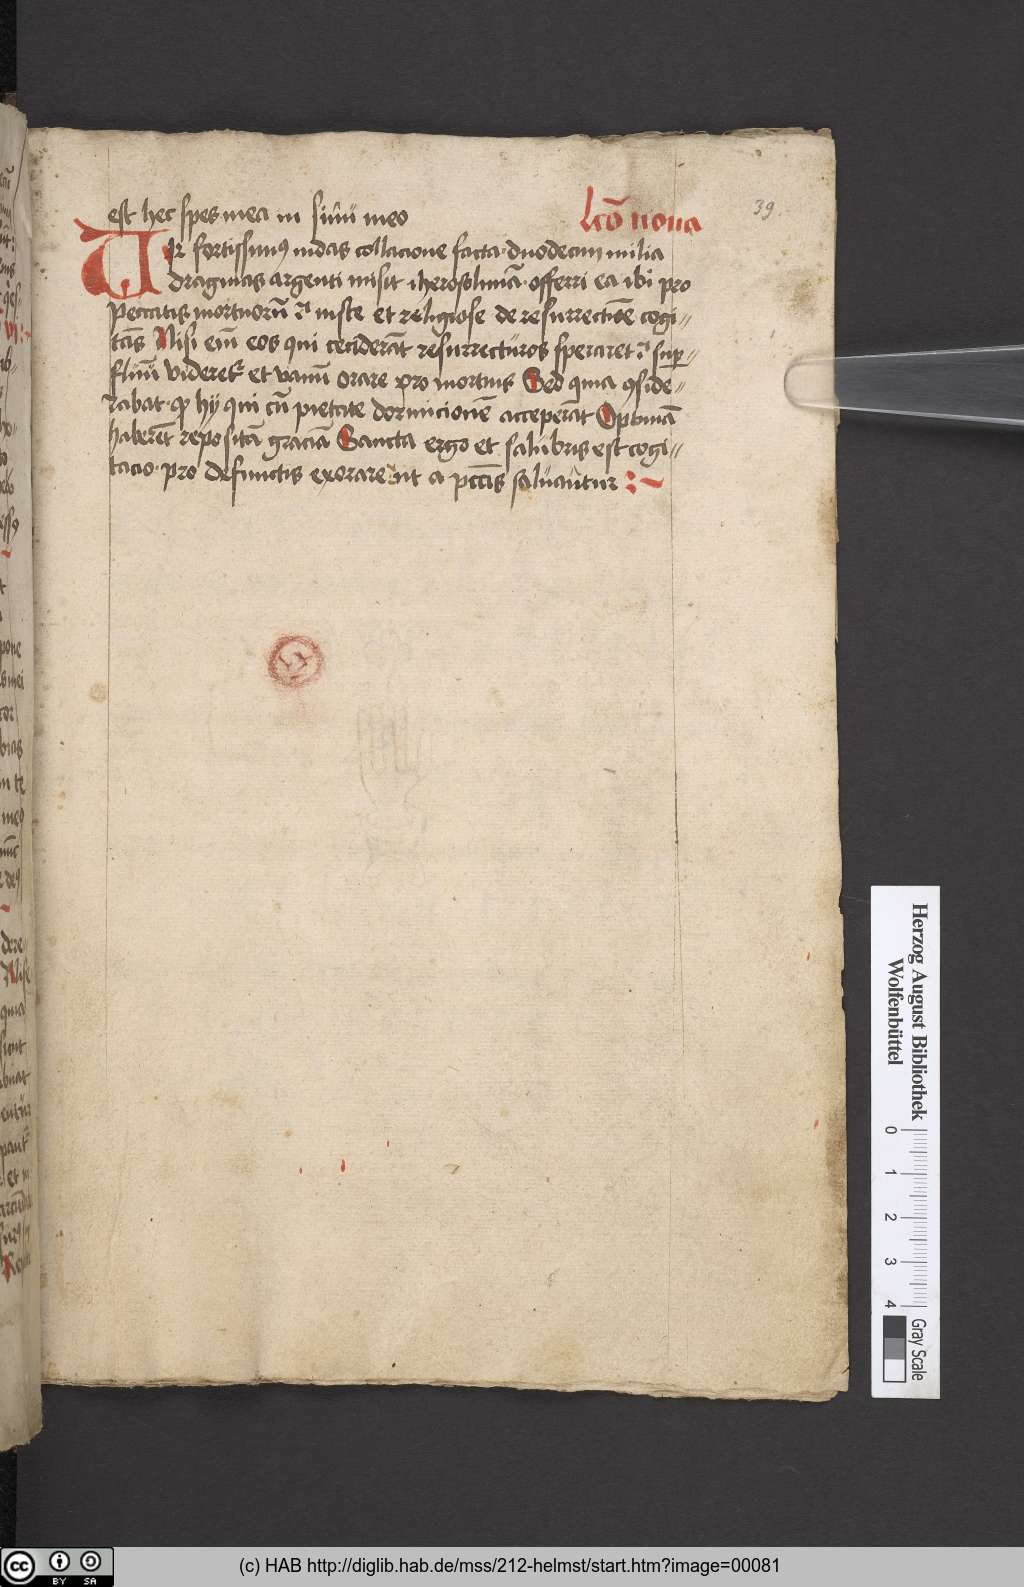 est hec spes mea in sinu meo lcō nona
39.
Vir fortissimꝰ iudas collacione facta· duodecim milia
dragmas argenti misit iherosolimā· offerri ea ibi pro
peccatis mortuorū ⁊ iuste et religiose de resurrectiōe cogi//
tās Nisi eiū eos qui ceciderāt resurrecturos speraret ⁊ suꝑ//
fluū videret᷑ et vanū orare pro mortuis Sed quia ꝯside//
rabat· ꝙ hij qui cū pietate dormicionē acceperāt Optimā
haberēt repositā graciā Sancta ergo et salubris est cogi//
tacio· pro defunctis exorare ut a pccīs saluāntur :~
Herzog August Bibliothek
Wolfenbüttel
0 1 2 3 4
Gray Scale
cc BY SA
(c) HAB http://diglib.hab.de/mss/212-helmst/start.htm?image=00081